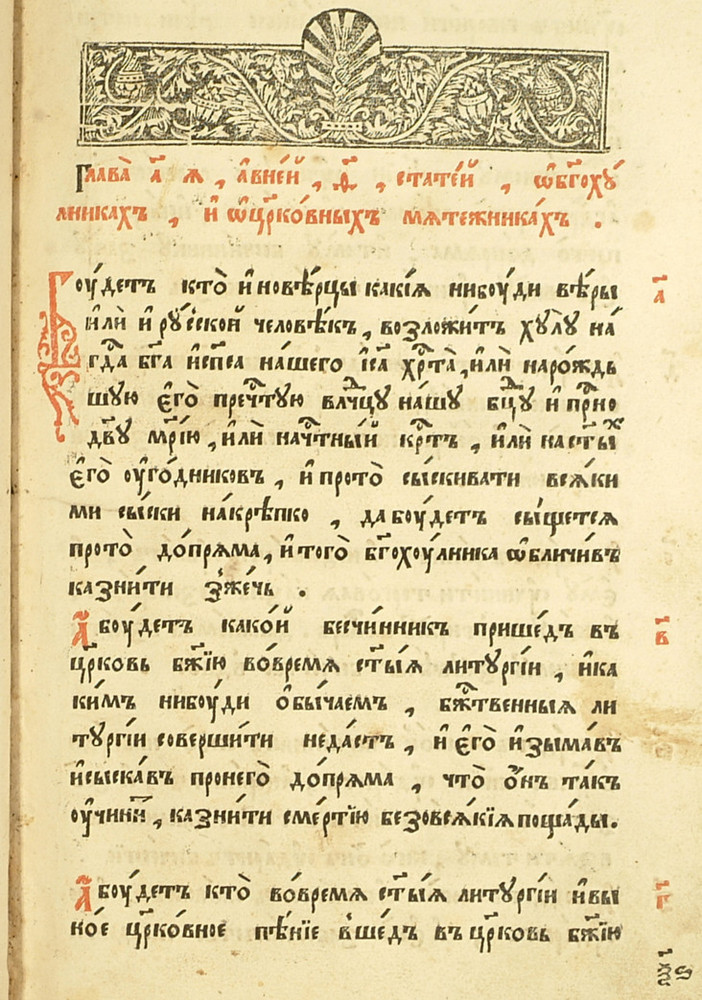 Глава̀ а҃ я , а҆вне́й , ѳ҃ , стате́й , ѡ҆бг҃охꙋ́
лникахъ , и҆ ѡ҆цр҃ко́вныхъ мѧте́жникахъ .
Бꙋ́детъ кто̀ и҆новѣ́рцы какі́ѧ нибꙋди вѣ́ры а҃
и҆лѝ и҆ рꙋ́сской человѣ́къ , возложи́тъ хꙋлꙋ̀ на́
гдⷭ҇а бг҃а и҆сп҃са на́шего і҆с҃а хрⷭ҇та̀ , и҆лѝ наро́ждь
шꙋю є҆го̀ пречⷭ҇тꙋю влⷣчцꙋ на́шꙋ бцⷣꙋ и҆ прⷭ҇но
дв҃ꙋ мр҃і́ю , и҆лѝ начⷭ҇тны́й крⷭ҇тъ , и҆лѝ на ст҃ы́хъ
є҆го̀ оу҆го́дниковъ , и҆ прото̀ сы́скивати всѧ́ки
ми сы́ски на́крѣпко , да бꙋ́детъ сы́щетсѧ
прото̀ до́прѧма , и҆ того̀ бг҃охꙋ́лника ѡ҆бличи́въ
казни́ти зже́чь .
А҆ бꙋ́детъ како́й бесчи́нникъ прише́дъ въ в҃
цр҃ковь бж҃їю во́времѧ ст҃ы́ѧ литꙋргі́и , и҆ ка
ки́мъ нибꙋ́ди ѻ҆бы́чаемъ , бжⷭ҇твенныѧ ли
тꙋргі́и соверши́ти неда́стъ , и҆ є҆го̀ и҆зыма́въ
и҆ сыска́въ пронего̀ до́прѧма , что̀ ѻ҆́нъ та́къ
оу҆чини́тъ , казни́ти сме́ртїю безовсѧ́кїѧ поща́ды .
А҆ бꙋ́детъ кто̀ во́времѧ ст҃ы́ѧ литꙋргі́и и҆ вы г҃
но́е цр҃ко́вное пѣ́нїе вше́дъ въ цр҃ковь бж҃їю